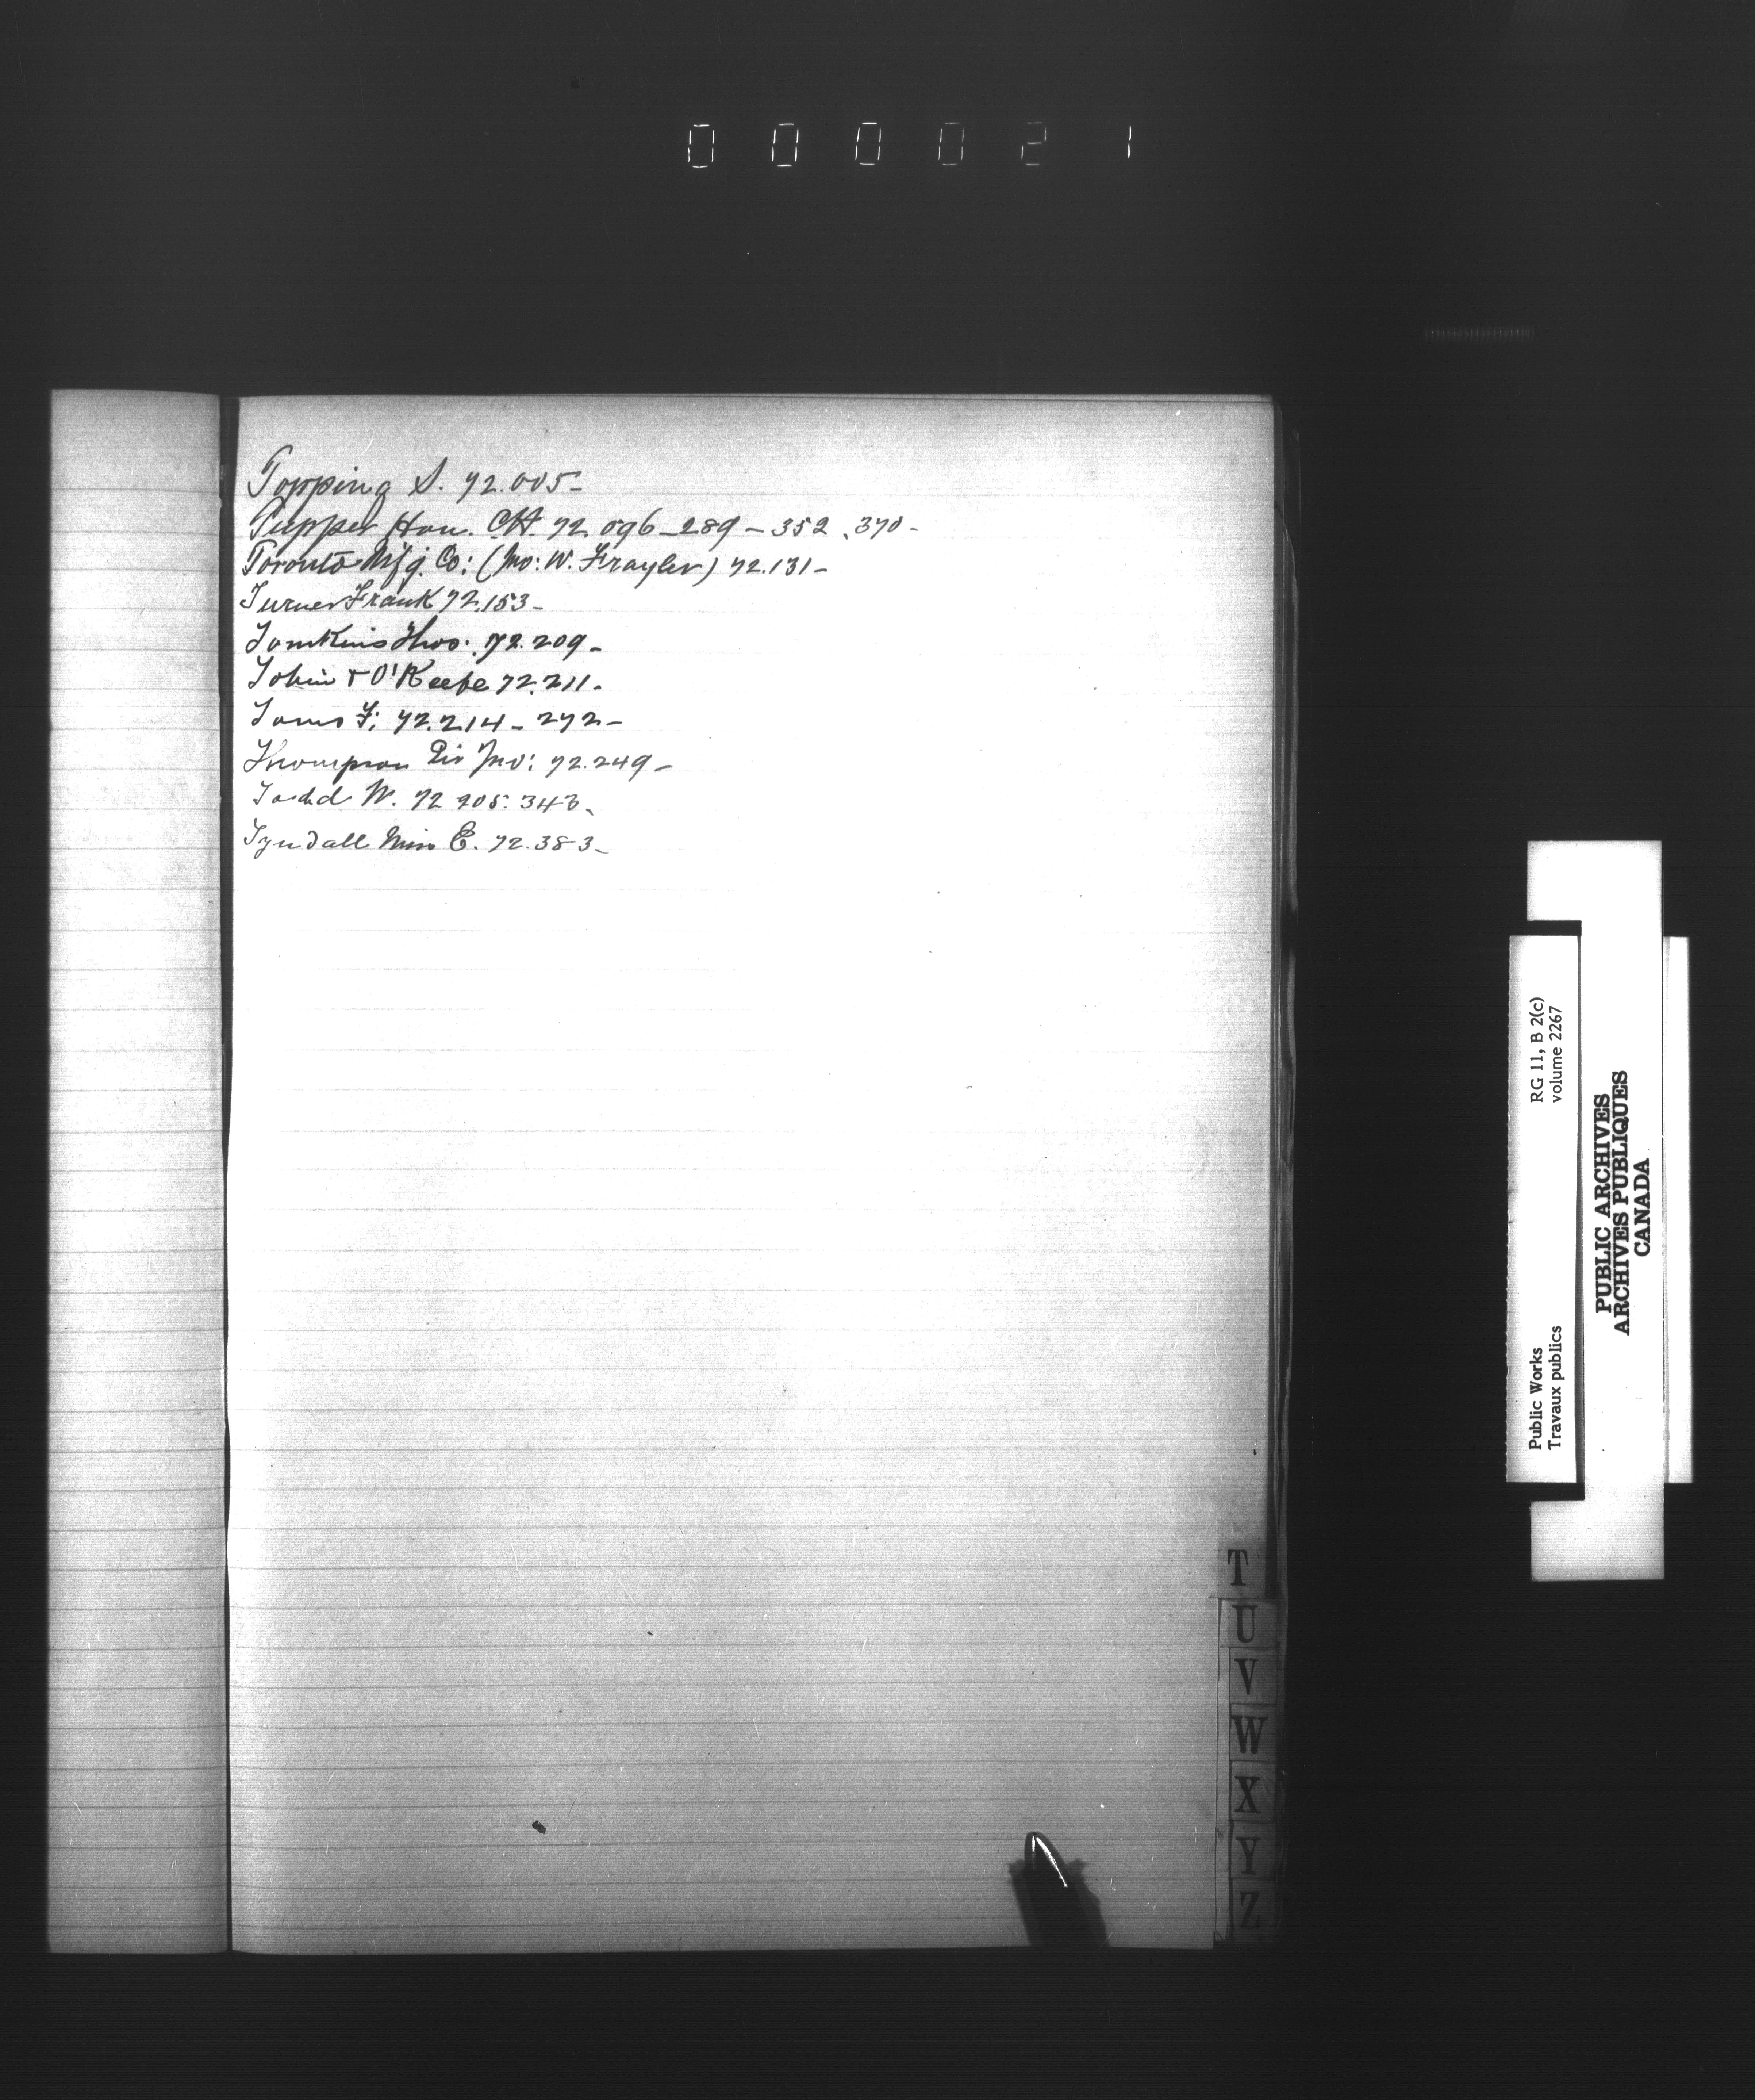 000021
Topping S. 72.005-
Tupper Hon. C.H. 72.096-289-352.370-
Toronto Mfg. Co: (Jno: W. Frayler) 72.131-
Turner Frank 72.153-
Tomkins Thos: 72.209-
Tobin & O'Keefe 72.211.
Toms F: 72.214-272-
Thompson Sir Jno: 72.249-
Todd W. 72 905: 343.
Tyndall Miss E. 72.383-
T
U
V
W
X
Y
Z
RG 11, B 2(c)
volume 2267
Public Works
Travaux publics
PUBLIC ARCHIVES
ARCHIVES PUBLIQUES
CANADA